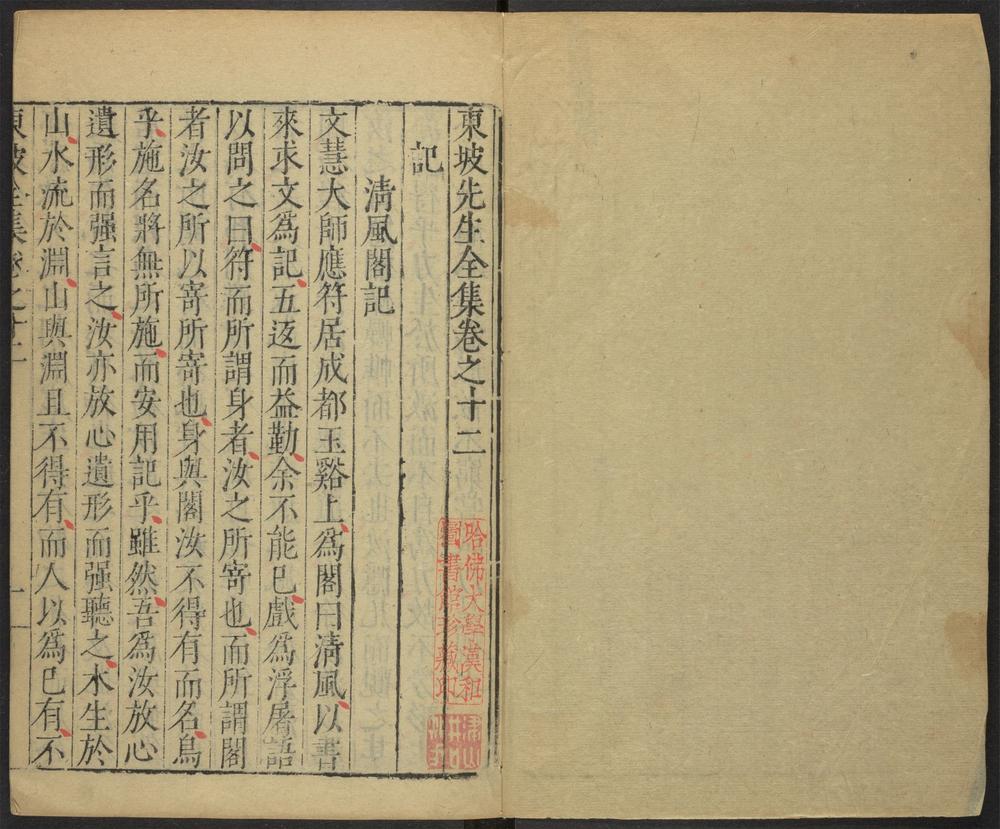 東坡先生全集卷之十二
記
清風閣記
文慧大師應符居成都玉谿上爲閣曰清風以書
來求文爲記五返而益勤余不能已戲爲浮屠語
以問之曰符而所謂身者汝之所寄也而所謂閣
者汝之所以寄所寄也身與閣汝不得有而名烏
乎施名將無所施而安用記乎雖然吾爲汝放心
遺形而强言之汝亦放心遺形而强聽之木生於
山水流於淵山與淵且不得有而人以爲已有不
東坡全集卷之十二
一
哈佛大學漢和
圖書館珍藏印